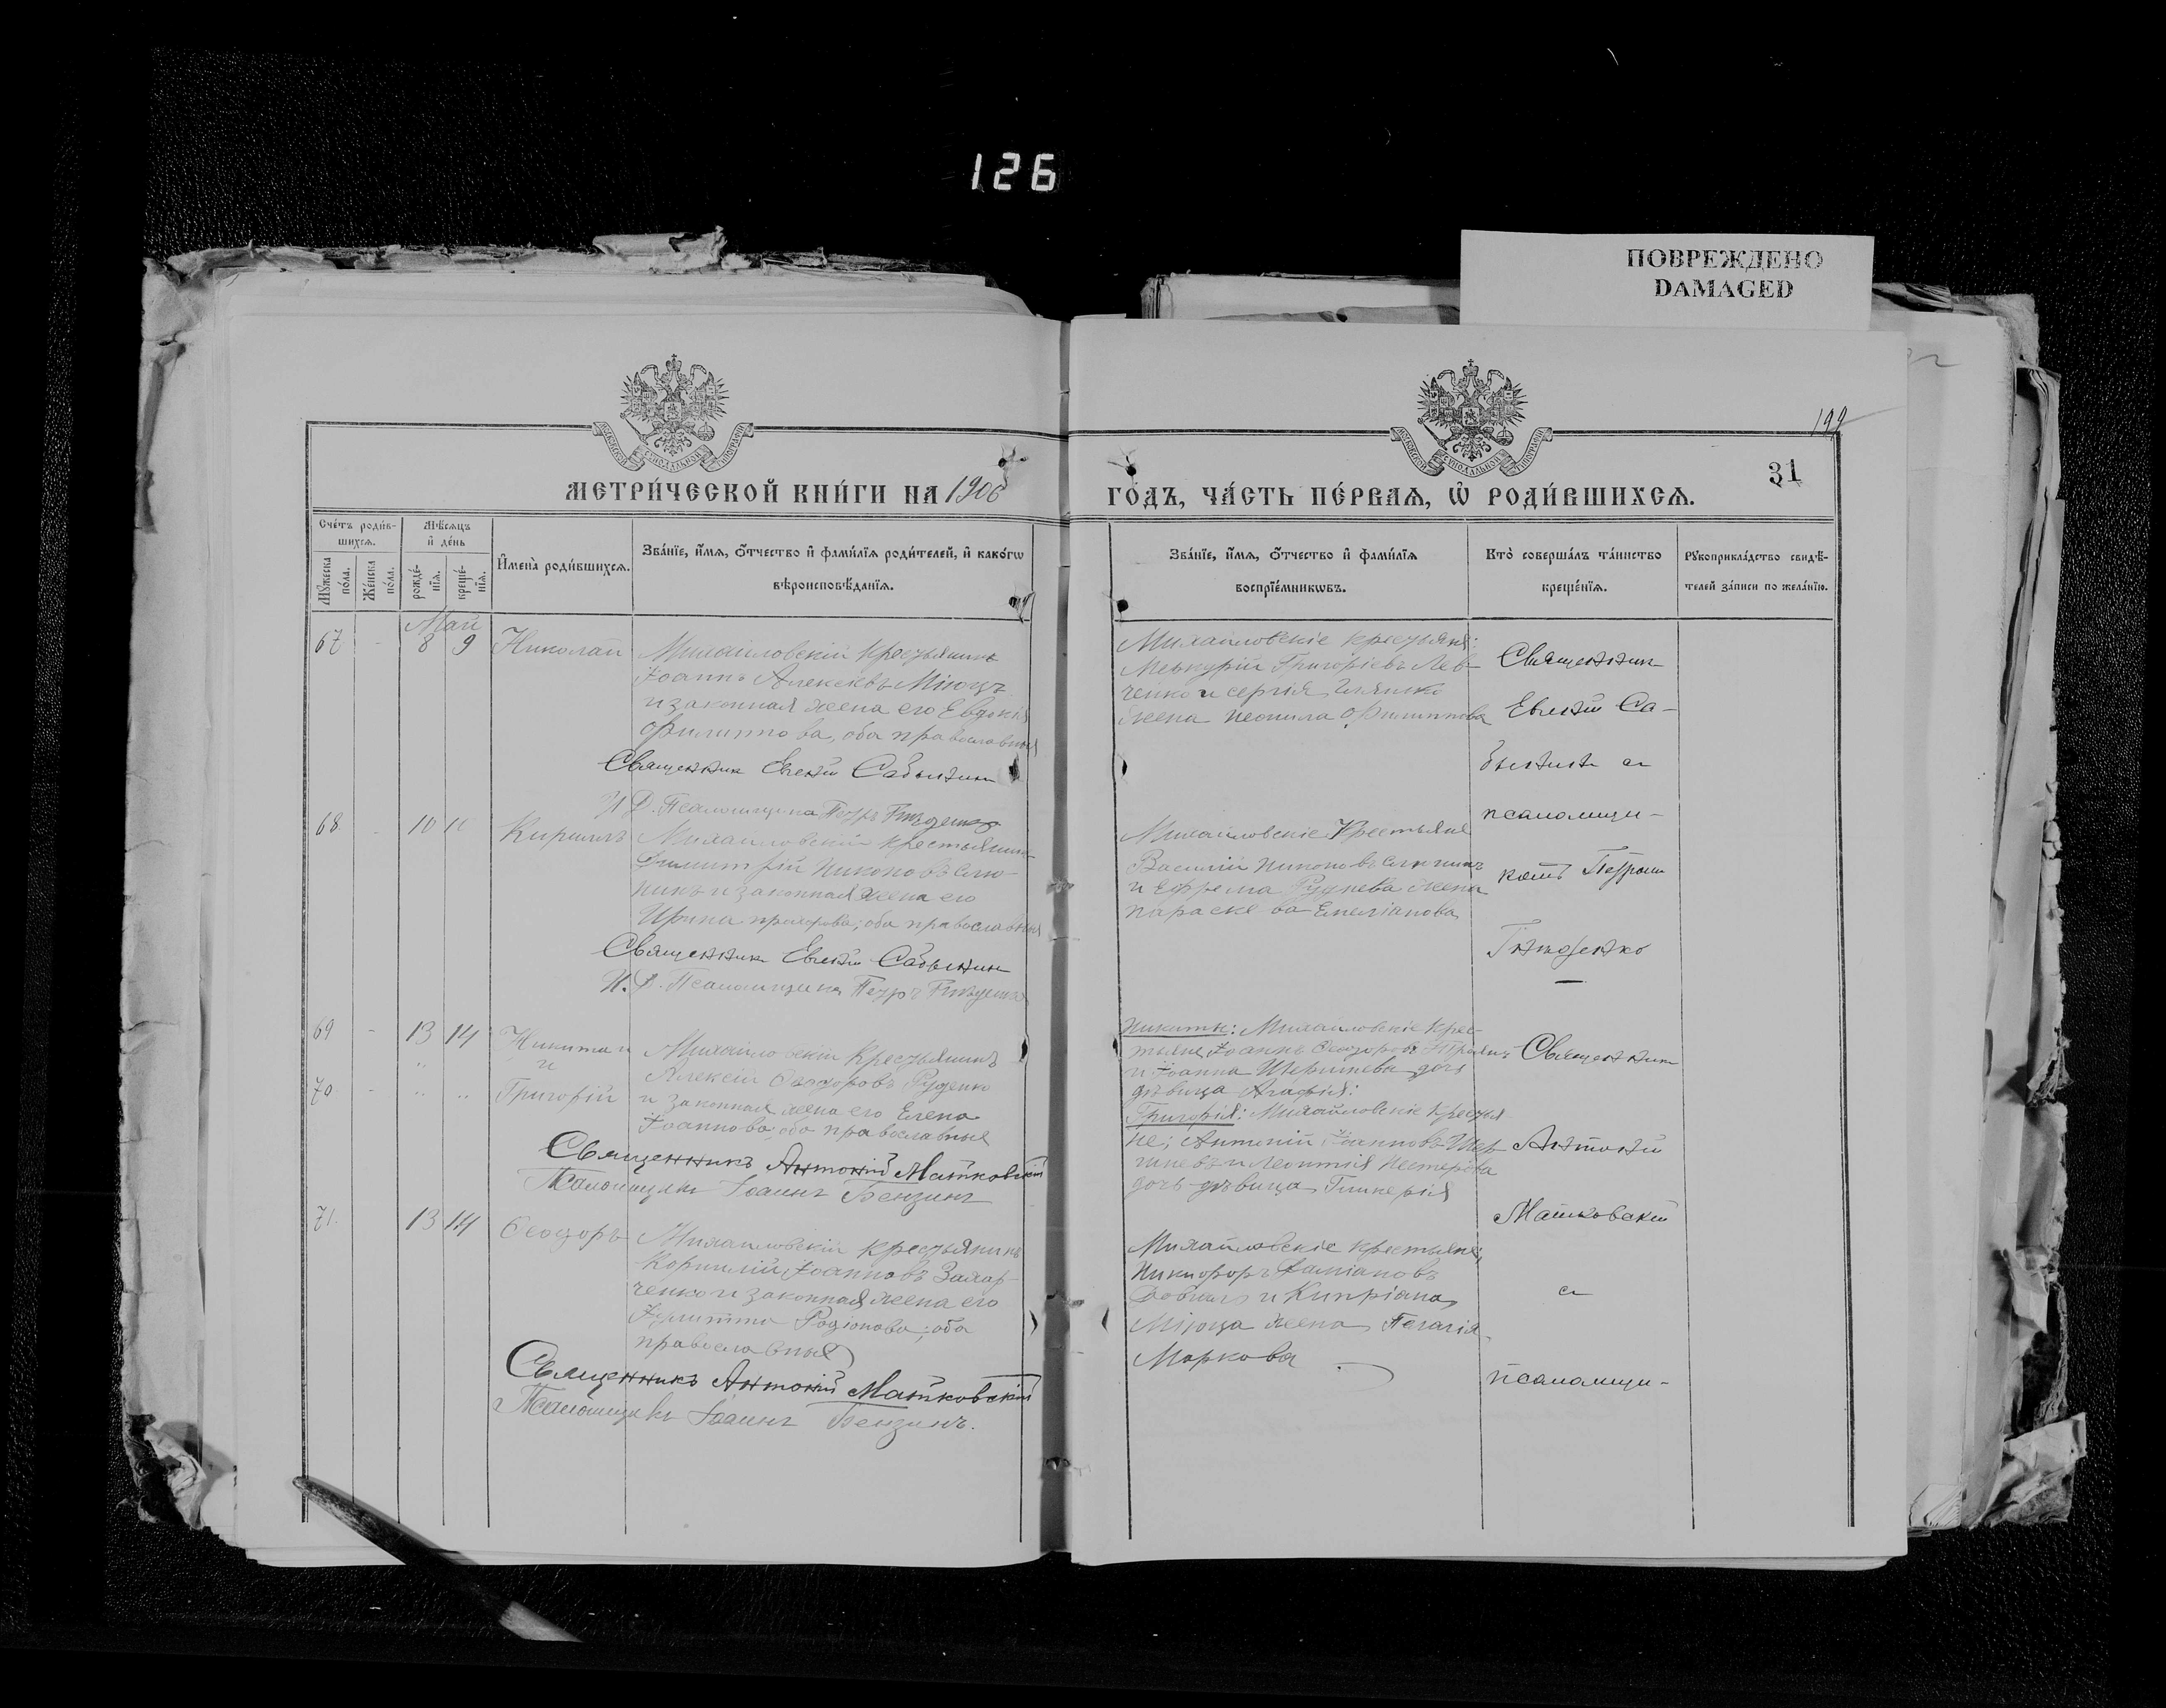 126
ПОВРЕЖДЕНО
DAMAGED
199
31
МЕТРИ́ЧЕСКОЙ КНИ́ГИ НА 1906
ГО́ДЪ, ЧА́СТЬ ПЕ́РВАѦ, Ѡ҆ РОДИ́ВШИХСѦ.
Сче́тъ роди́в-
шихсѧ.
Мѣ́сѧцъ
и҆ де́нь
Мꙋ́жеска
по́ла.
Же́нска
по́ла.
рожде́-
нїѧ.
креще́-
нїѧ.
И҆мена̀ роди́вшихсѧ.
Зва́нїе, и҆́мѧ, ѻ҆́тчество и҆ фами́лїѧ роди́телей, и҆ како́гѡ
вѣроисповѣ́данїѧ.
Зва́нїе, и҆́мѧ, ѻ҆́тчество и҆ фами́лїѧ
воспрїе́мникѡвъ.
Кто̀ соверша́лъ та́инство
креще́нїѧ.
Рꙋкоприкла́дство свидѣ́-
телей за́писи по жела́нїю.
Май
67 - 8 9 Николай
Михайловскій крестьянинъ
Іоаннъ Алексѣевъ Мiюцъ
и законная жена его Евдокія
Филиппова, оба православные
Священникъ Евгеній Сабынинъ
И. Д. Псаломщика Петръ Гнѣденко
Михайловскіе крестьяне:
Меркурій Григорьевъ Лев-
ченко и Сергія
жена Неонила Филиппова
Священник
Евгеній Са-
бынинъ съ
псаломщи-
комъ Петромъ
Гнѣденко
68 - 10 10 Кириллъ
Михайловскій крестьянинъ
Димитрій Никоновъ Слю-
нинъ и законная жена его
Ирина Прохорова; оба православные
Священникъ Евгеній Сабынинъ
И. Д. Псаломщика Петръ Гнѣденко
Михайловскіе Крестьяне
Василій Никоновъ Слюнинъ
и Ефрема Руднева жена
Параскева Емеліанова
69 - 13 14 Никита и
и
70 - " " Григорій
Михайловскій Крестьянинъ
Алексій Ѳеодоровъ Руденко
и законная жена его Елена
Іоаннова; оба православные
Священникъ Антоній Матковскій
Псаломщикъ Іоаннъ Бензинъ
Никиты: Михайловскіе Крес-
тьяне Іоаннъ Ѳеодоровъ
и Іоанна Шершнева дочь
дѣвица Агафія:
Григорія: Михайловскіе Крестья
не; Антоній Іоанновъ Шер-
шневъ и Леонтія Нестерова
дочь дѣвица Гликерія
Священникъ
Антоній
Матковскій
съ
псаломщи-
71. 13 14 Ѳеодоръ
Михайловскій крестьянинъ
Корнилій Іоанновъ Захар-
ченко и законная жена его
Іулитта Родіонова; оба
православные
Священникъ Антоній Матковскій
Псаломщикъ Іоаннъ Бензинъ.
Михайловскіе крестьяне;
Никифоръ Даміановъ
Довгаль и Кипріана
Мiюца жена Пелагія
Маркова